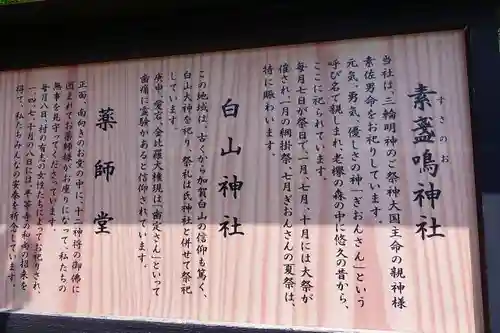 素盞鳴神社
すさのお
当社は、三輪明神のご祭神大国主命の親神様
素佐男命をお祀りしています。
元気、勇気、優しさの神「ぎおんさん」という
呼び名で親しまれ、老欅の森の中に悠久の昔から、
ここに祀られています。
毎月七日が祭日で、一月、七月、十月には大祭が
催され、一月の綱掛祭、七月ぎおんさんの夏祭は、
特に賑わいます。
白山神社
この地域は、古くから加賀白山の信仰も篤く、
白山大神を祀り、祭礼は氏神社と併せて祭祀
しています。
庚申、愛宕、金比羅大権現は「歯定さん」といって
歯痛に霊験があると信仰されています。
薬師堂
正面、南向きのお堂の中に、十二神将の御佛に
囲まれてお薬師様がお座りになって、私たちの
無事を見守ってくださっています。
毎月八日、村の有志の女性たちによってお祀りされ、
一、四、七、十月の大日には、平等寺の和尚の招来を
得て、私たちみんなの安泰を祈念しています。